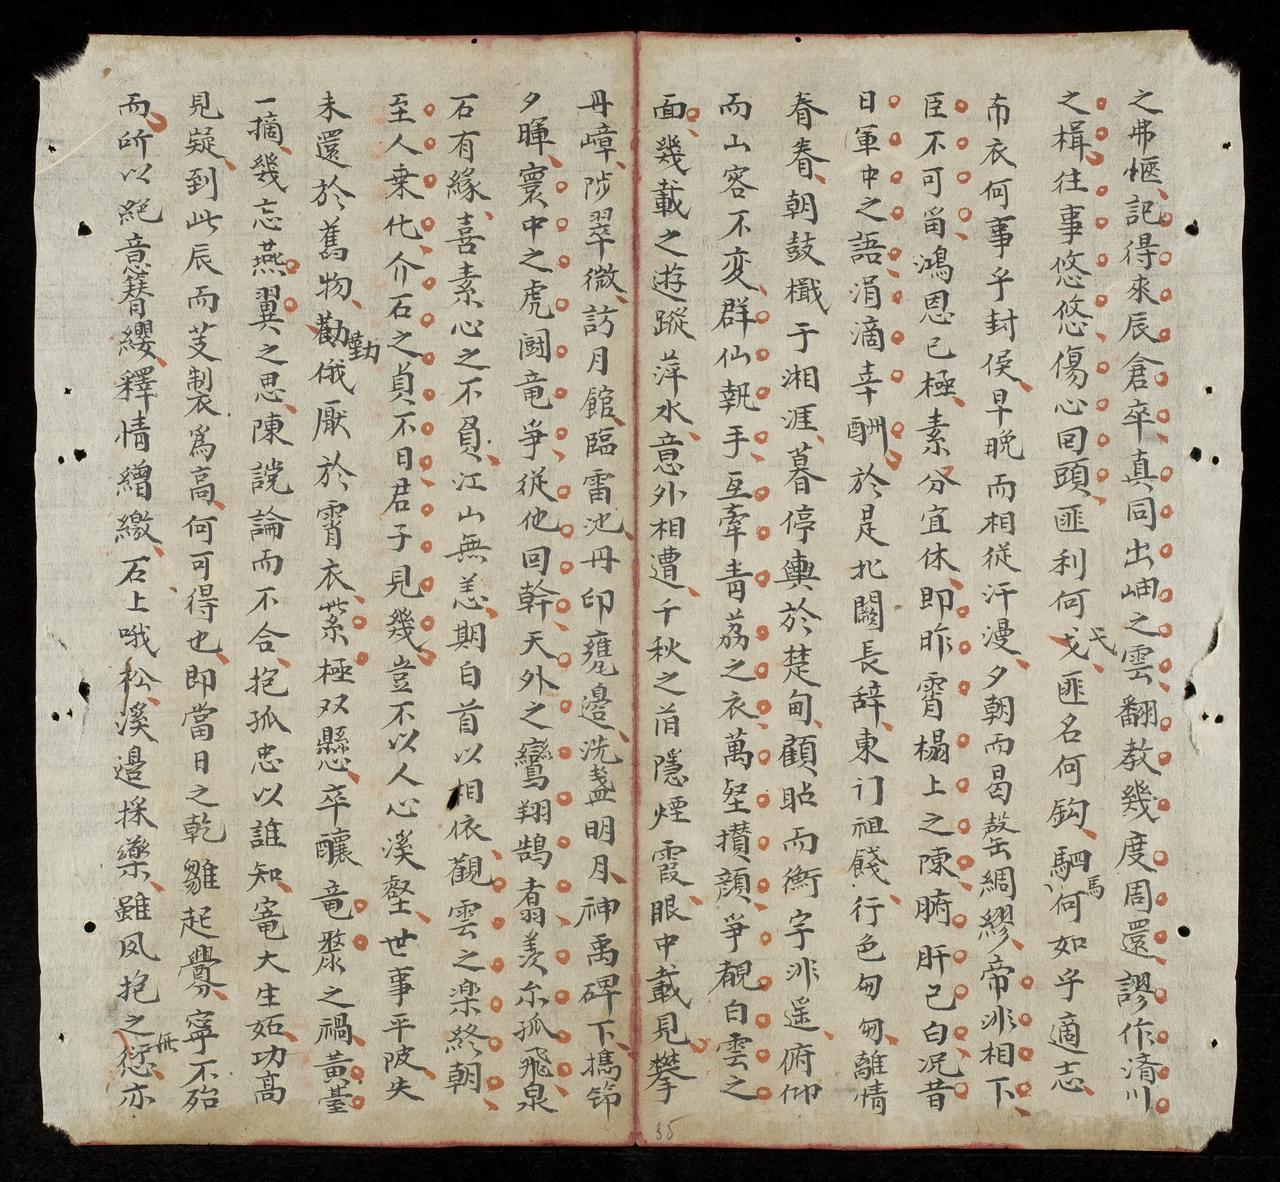 之弗愜記得來辰倉卒真同出岫之雲翻教幾度周還謬作済川
之楫往事悠悠傷心回頭匪利何戈弋匪名何鈎駟馬何如乎適志
布衣何事乎封侯早晚而相従汗漫夕朝而曷嫯綢繆帝非相下
臣不可畱鴻恩已極素分宜休即昨霄榻上之陳腑肝已白况昔
日軍中之語涓滴幸酬於是北闕長辞東门祖餞行色匆匆離情
眷眷朝鼓檝于湘涯暮停輿於楚甸顧贴而衡字非遥俯仰
而山容不変群仙執手互牽青荔之衣萬壑攅顔爭覩白雲之
面幾載之遊蹤萍水意外相遭千秋之肯隱煙霞眼中載見攀
丹嶂陟翠微訪月館臨雷池丹印甕邉洗盞明月神禹碑下携筇
夕暉寰中之虎閗竜爭従他回斡天外之鸞翔鵠翥羡尓孤飛泉
石有緣喜素心之不負江山無恙期白首以相依觀雲之楽終朝
至人乗化介石之貞不日君子見幾豈不以人心溪壑世事平陂失
未還於舊物勸勤俄厭於霄衣紫極双懸卒釀竜漦之禍黄䑓
一摘幾忘燕翼之思陳讜論而不合抱孤忠以誰知寃大生妬功髙
見疑到此辰而芰製爲高何可得也即當日之乾雛起釁寧不殆
而所以絕意簪纓釋情繒繳石上哦松溪邉採藥雖夙抱之愆亦